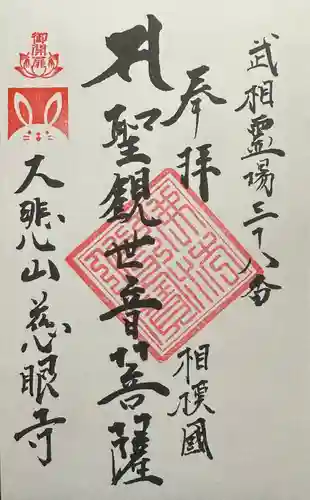 武相霊場三十八番
奉拝
相模國
聖観世音菩薩
御開扉
大悲山慈眼寺